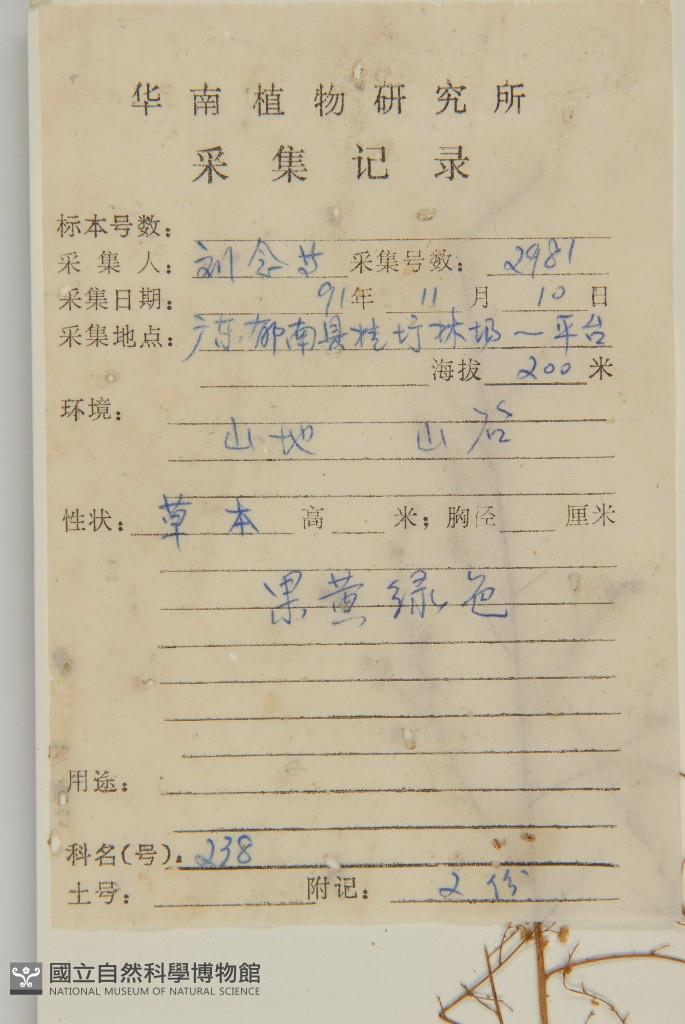 华南植物研究所
采集记录
标本号数：
采集人：刘念 采集号数：2981
采集日期：91年 11 月 10 日
采集地点：广东郁南县桂圩林场一平台
海拔 200 米
环境：
山地 山谷
性状：草本 高 米；胸径 厘米
果黄绿色
用途：
科名(号)：238
土号： 附记：2份
國立自然科學博物館
NATIONAL MUSEUM OF NATURAL SCIENCE